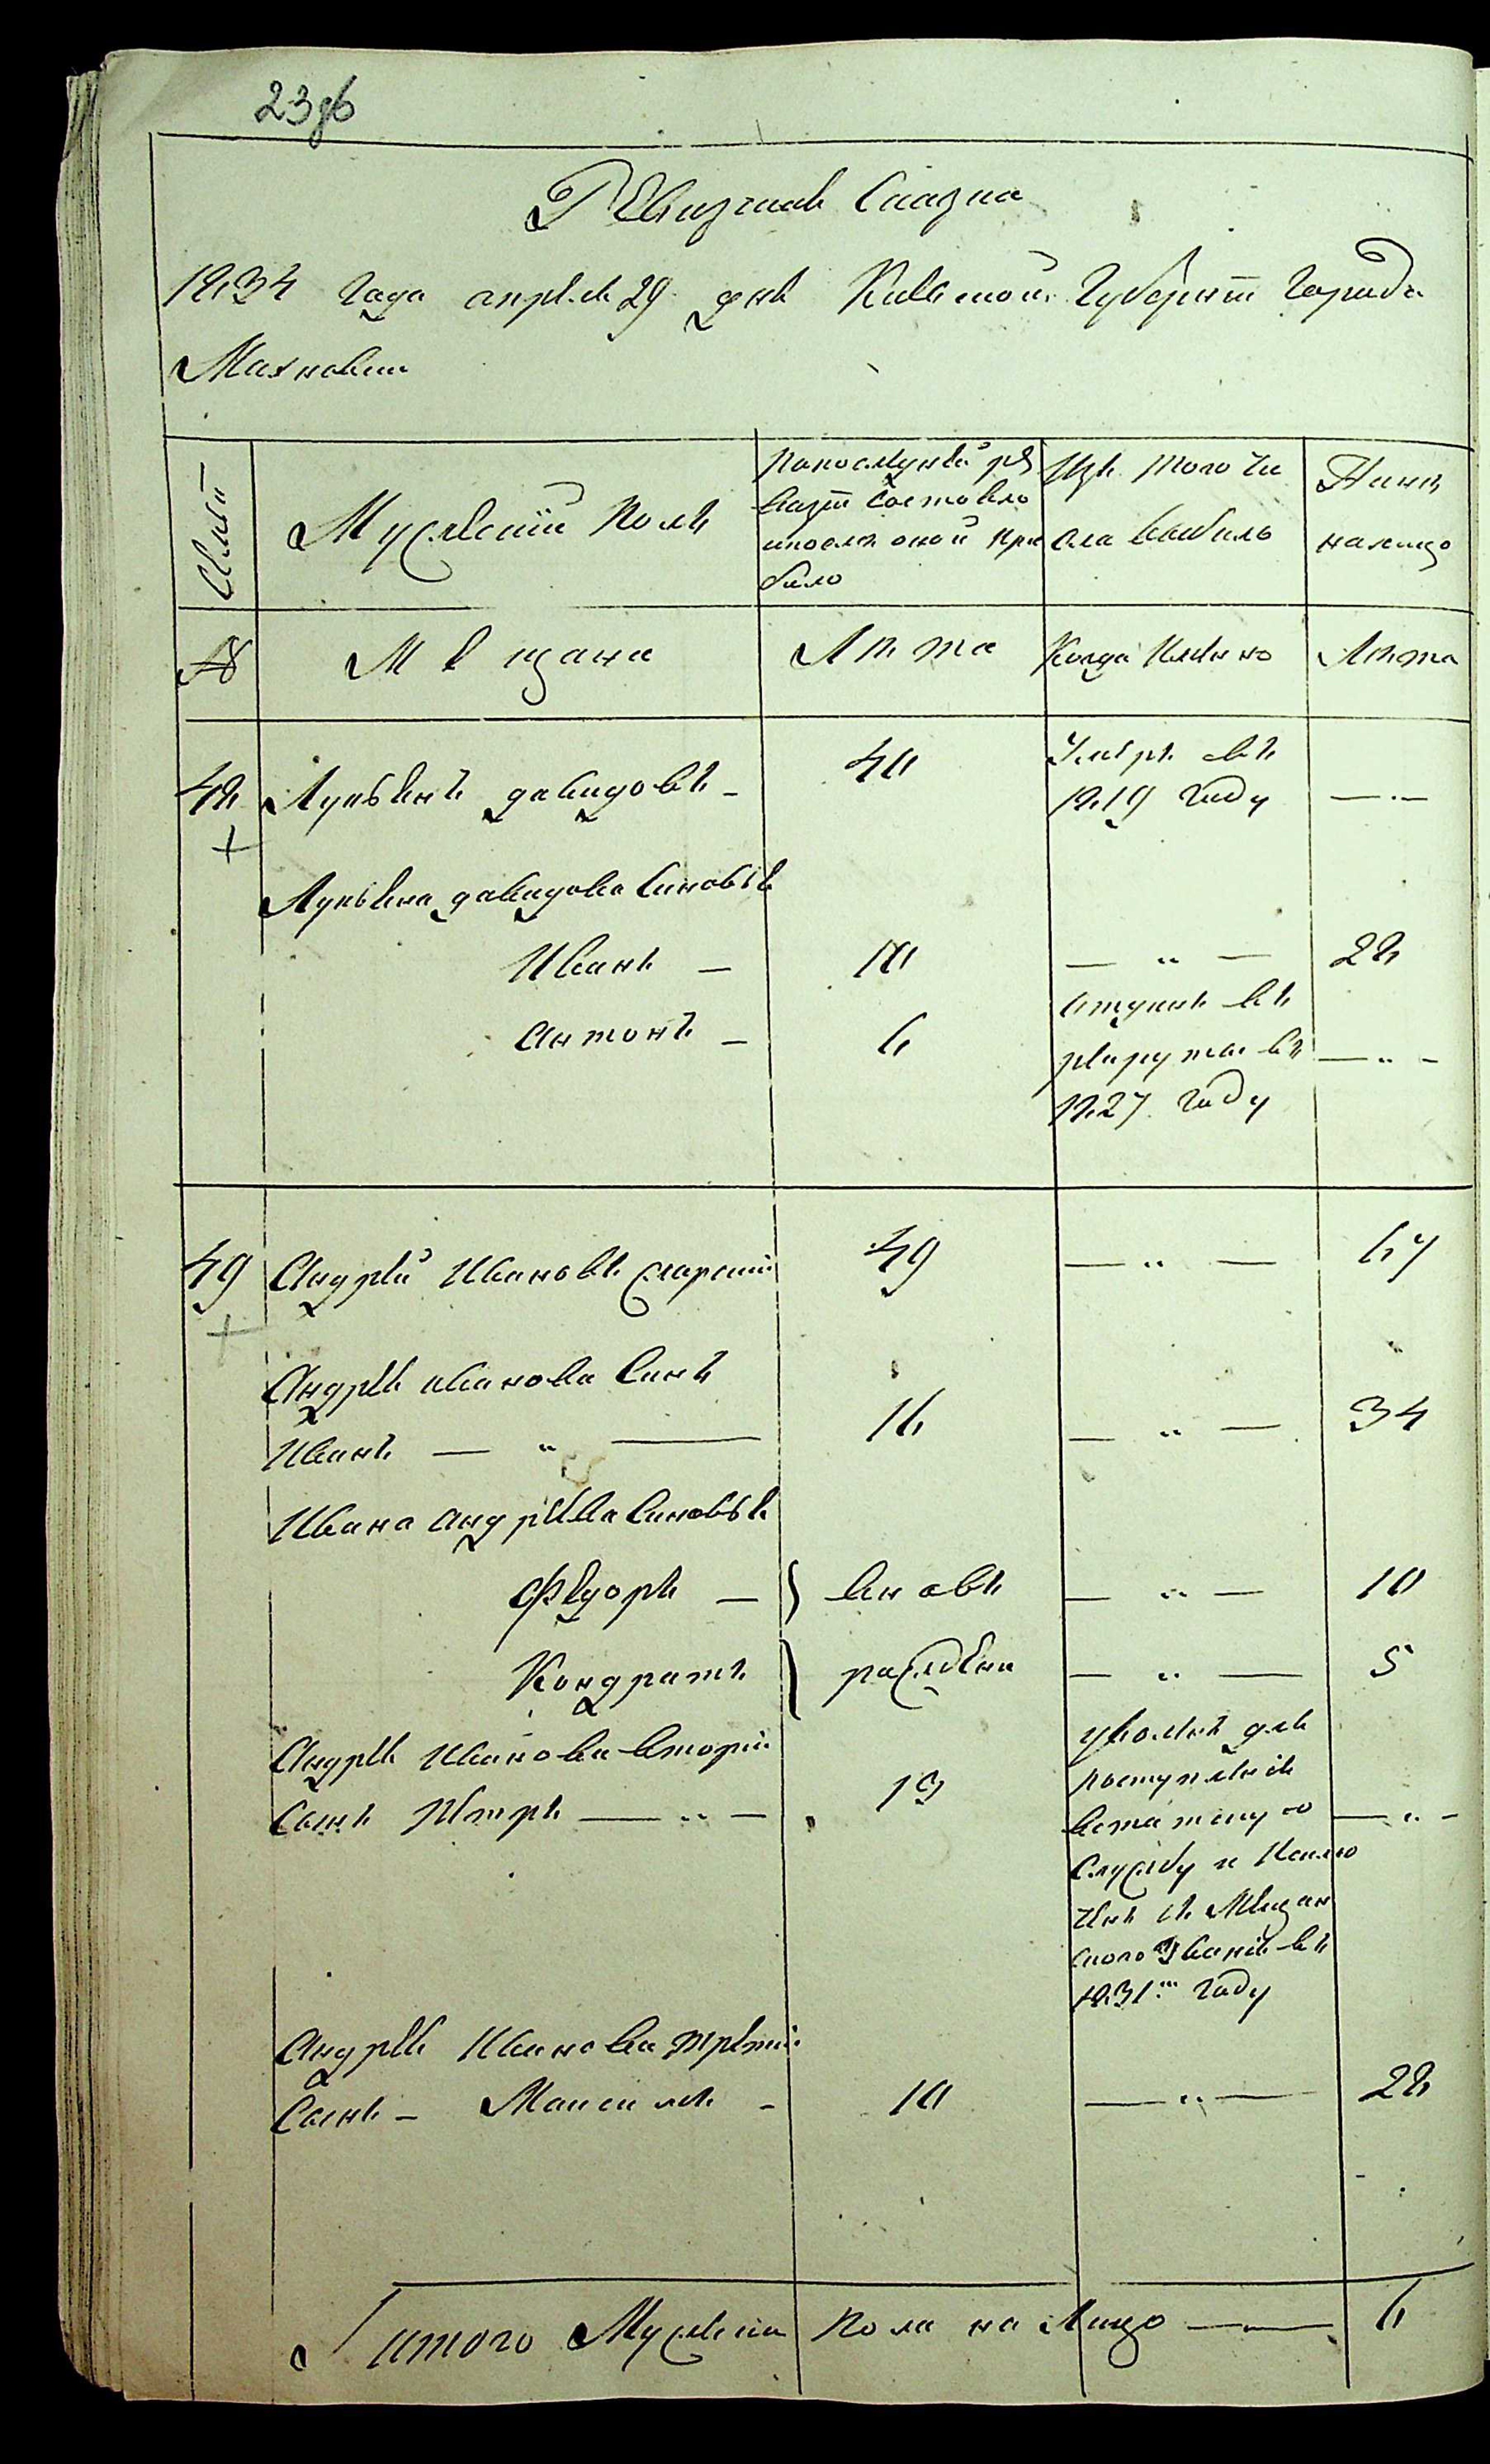 23об
Ревизская Сказка
1834 Года апреля 29 дня Киевской Губернии Города
Махновки
Семьи
Мужескiй полъ
Попоследней ре
визiи состояло
ипосле оной при
было
Изъ того чи
сла выбыло
Нынѣ
налицо
№
Мещане
Лѣта
Когда имянно
Лѣта
48
Лукьянъ давидовъ –
40
Умеръ въ
1819 Году
—„—
+
Лукьяна давидова Синовья
Иванъ –
10
— „ —
28
антонъ –
6
отданъ въ
рекруты въ
1827 Году
— „ –
49
Андрей Ивановъ старшiй
49
— „ —
67
+
Андрея иванова Синъ
Иванъ — „ —
16
— „ —
34
Ивана андреева Синовья
Федоръ — }
вновь
— „ —
10
Кондратъ }
рождени
— „ —
5
Андрея Иванова вторiй
Сынъ Петръ — „ —
13
уволенъ для
поступленiя
встатскую
Службу и Исклю
ченъ съ Мещан
ского Званiя въ
1831м Году
— „ –
Андрея Иванова третiй
Сынъ – Максимъ –
10
— „ —
28
Итого Мужеска Пола на Лицо ——
6